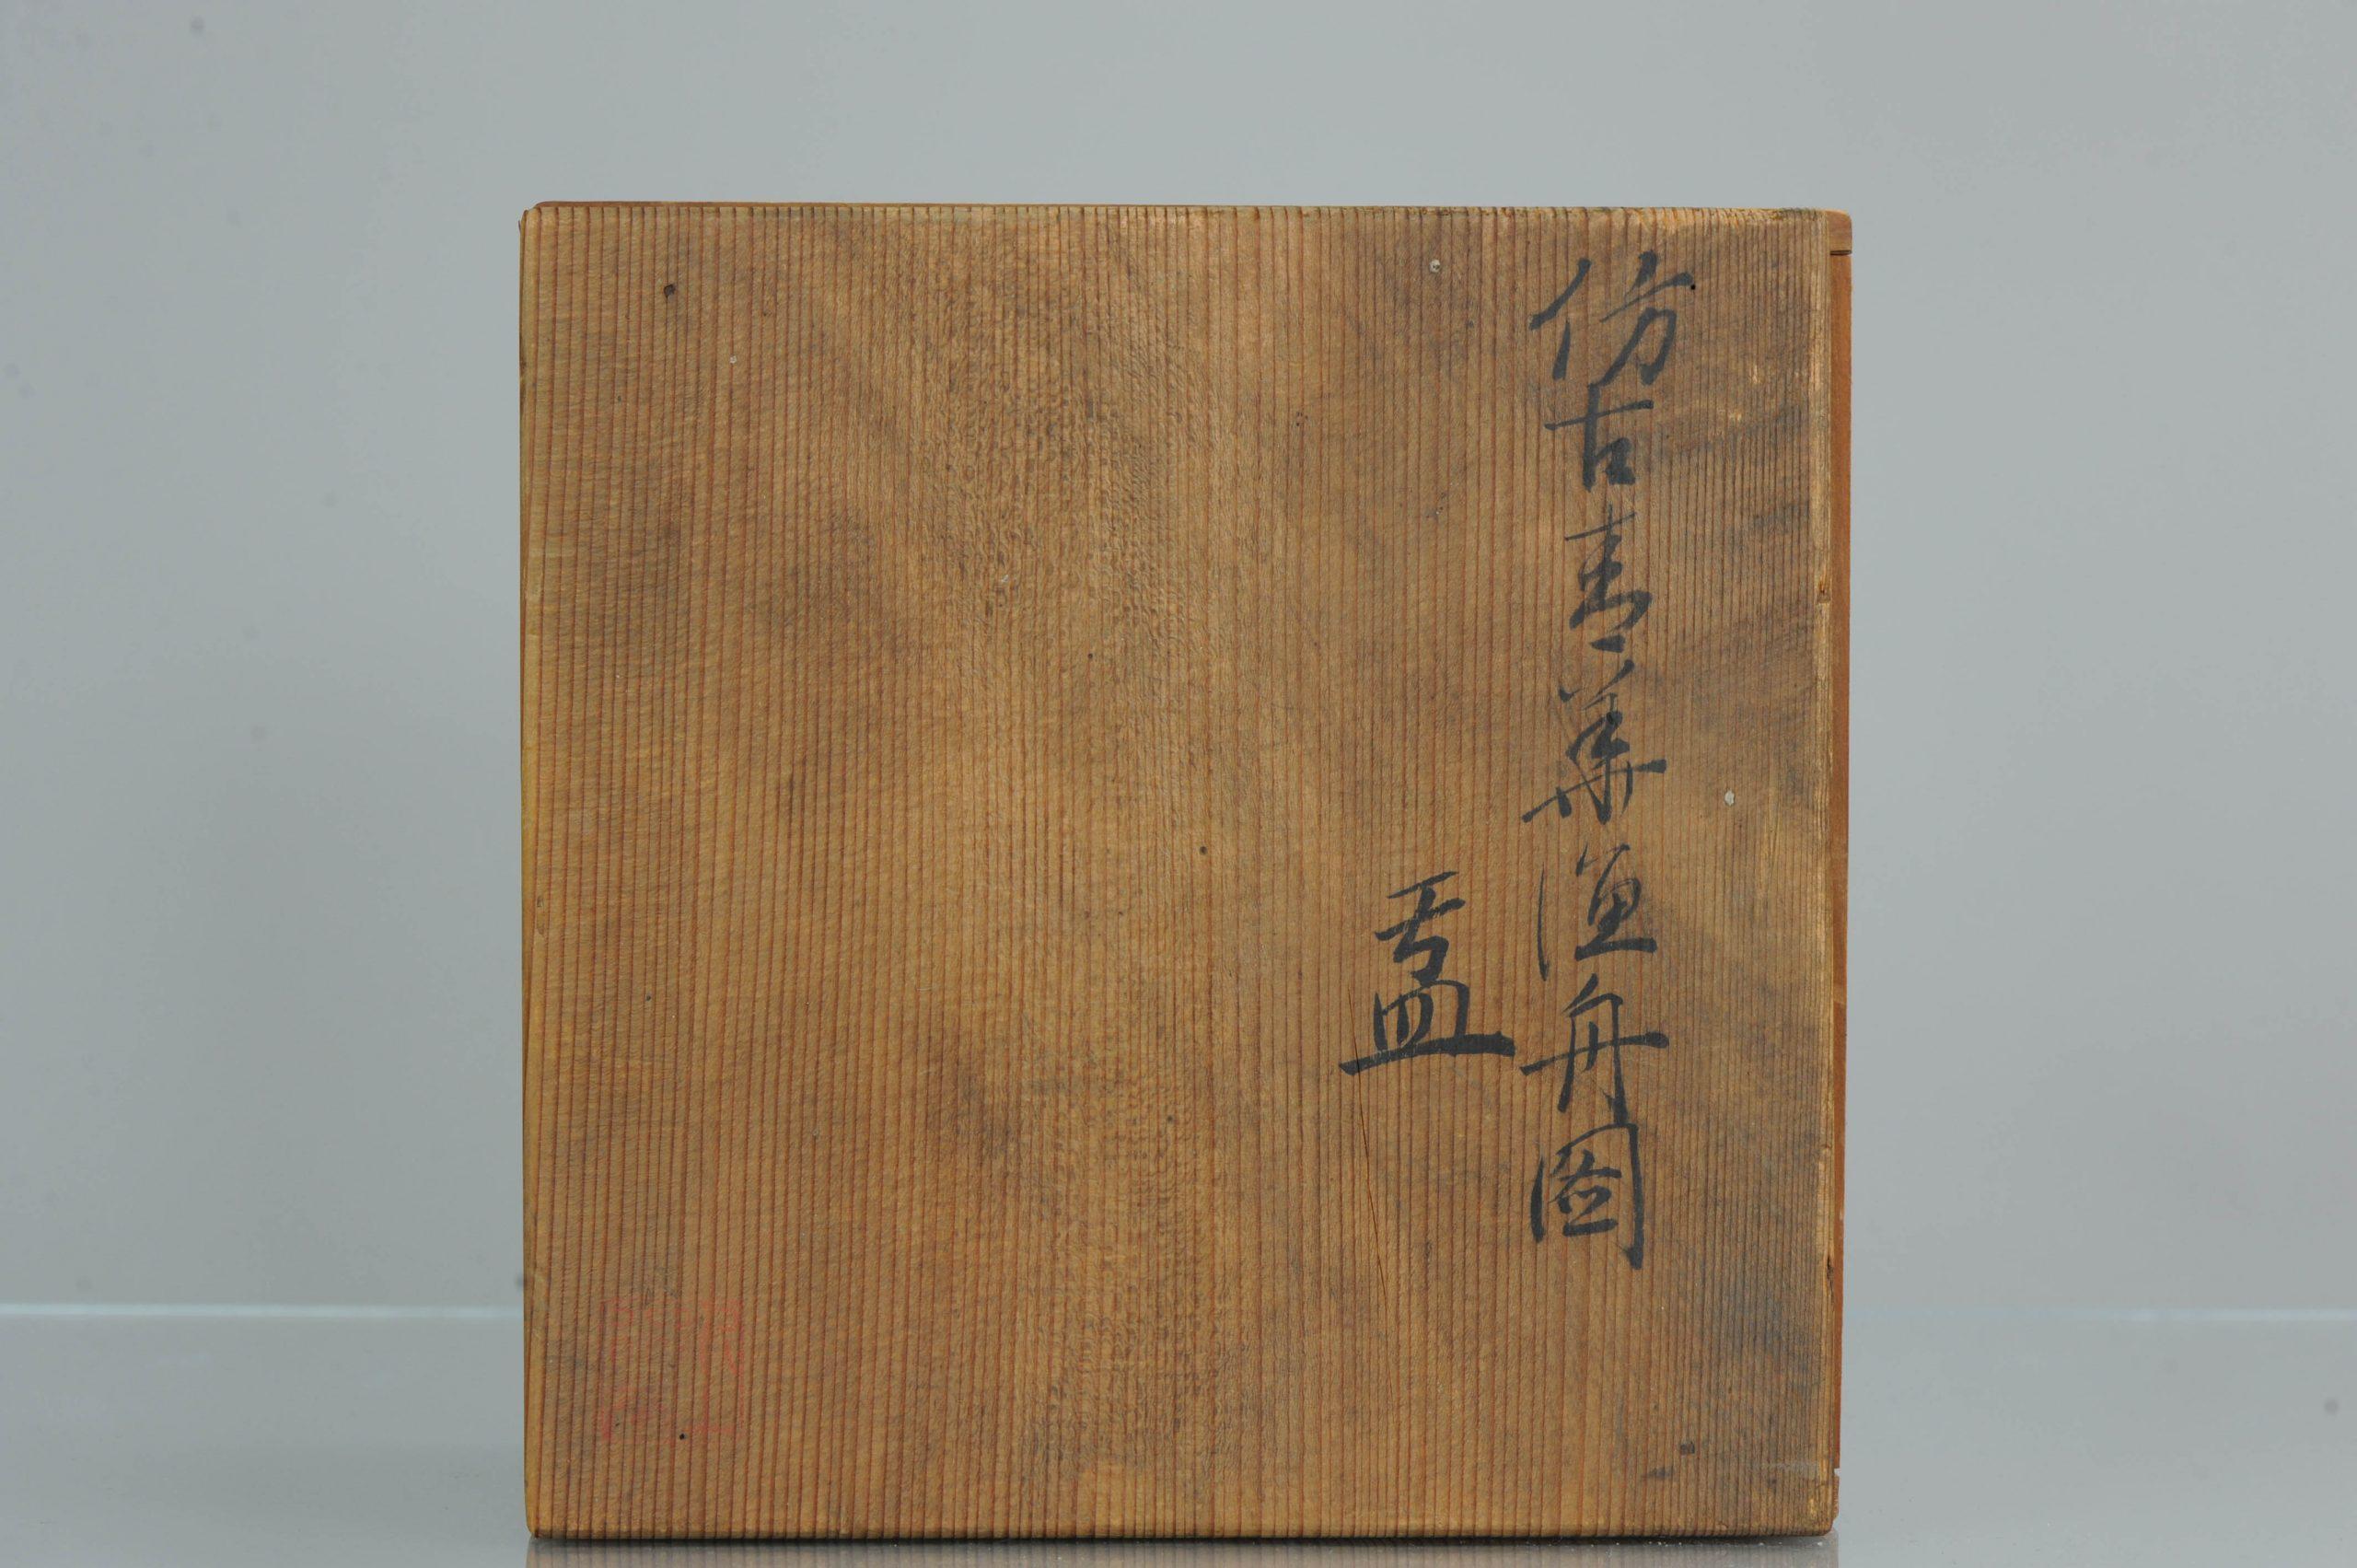 仿古青華漁舟圖
盂